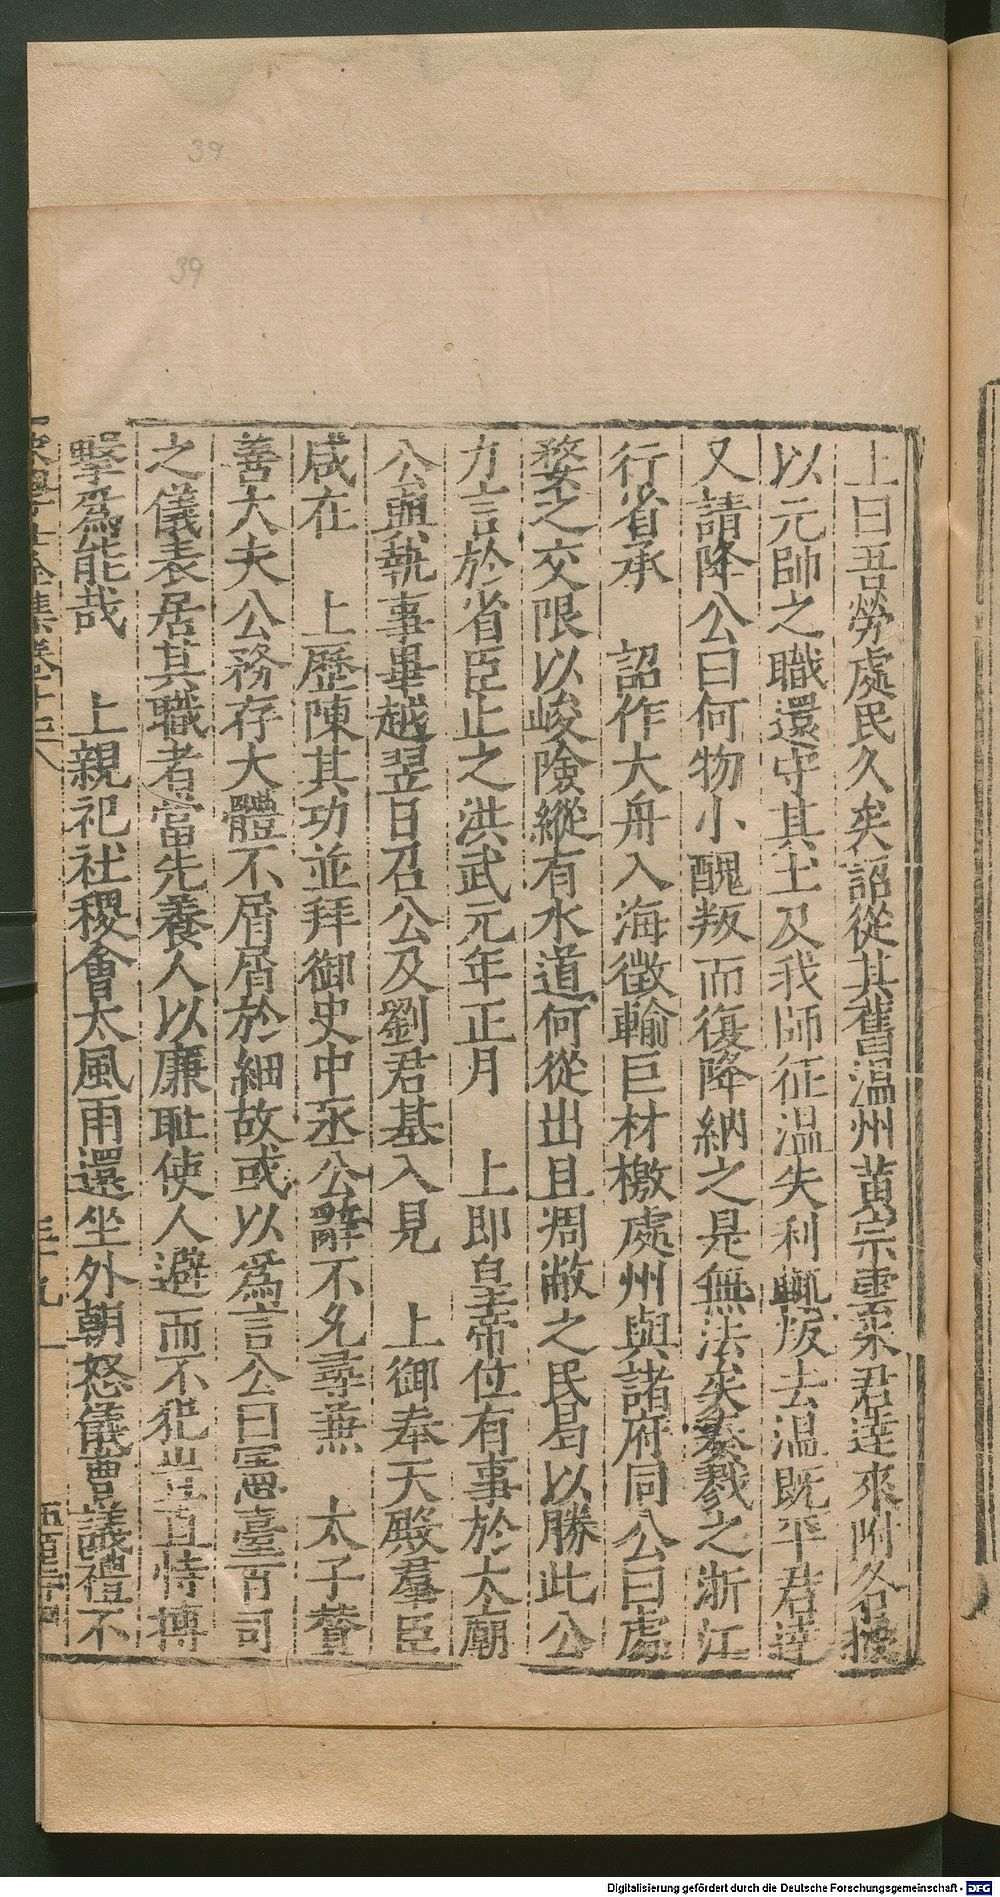 39
39
上曰吾勞處民久矣詔從其舊温州黃宗雲梁君達來附各授
以元帥之職還守其土及我師征温失利輒叛去温既平君達
又請降公曰何物小醜叛而復降納之是無法矣奏戮之浙江
行省承　詔作大舟入海徵輸巨材檄處州與諸府同公曰處
婺之交限以峻險縱有水道何從出且凋敝之民曷以勝此公
力言於省臣止之洪武元年正月　上即皇帝位有事於太廟
公與執事畢越翌日召公及劉君基入見　上御奉天殿羣臣
咸在　上歷陳其功並拜御史中丞公辭不允尋兼　太子贊
善大夫公務存大體不屑屑於細故或以爲言公曰憲臺百司
之儀表居其職者當先養人以廉耻使人避而不犯豈直恃搏
擊爲能哉　上親祀社稷會大風雨還坐外朝怒儀曹議禮不
三十九
Digitalisierung gefördert durch die Deutsche Forschungsgemeinschaft - DFG